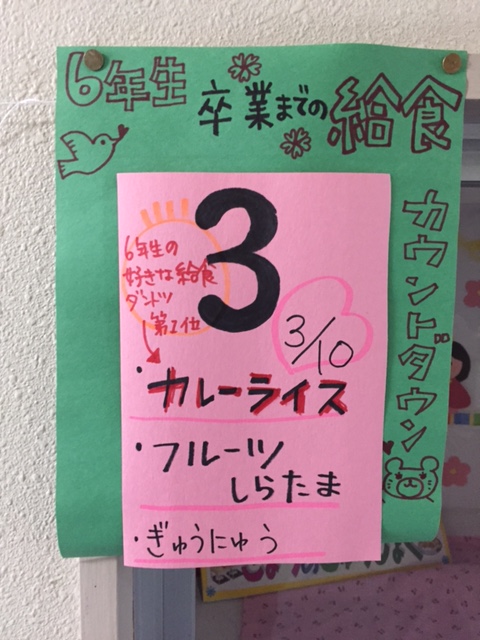 6年生
卒業までの給食
カウントダウン
3
6年生の
好きな給食
ダントツ
第1位
3/10
・カレーライス
・フルーツ
しらたま
・ぎゅうにゅう